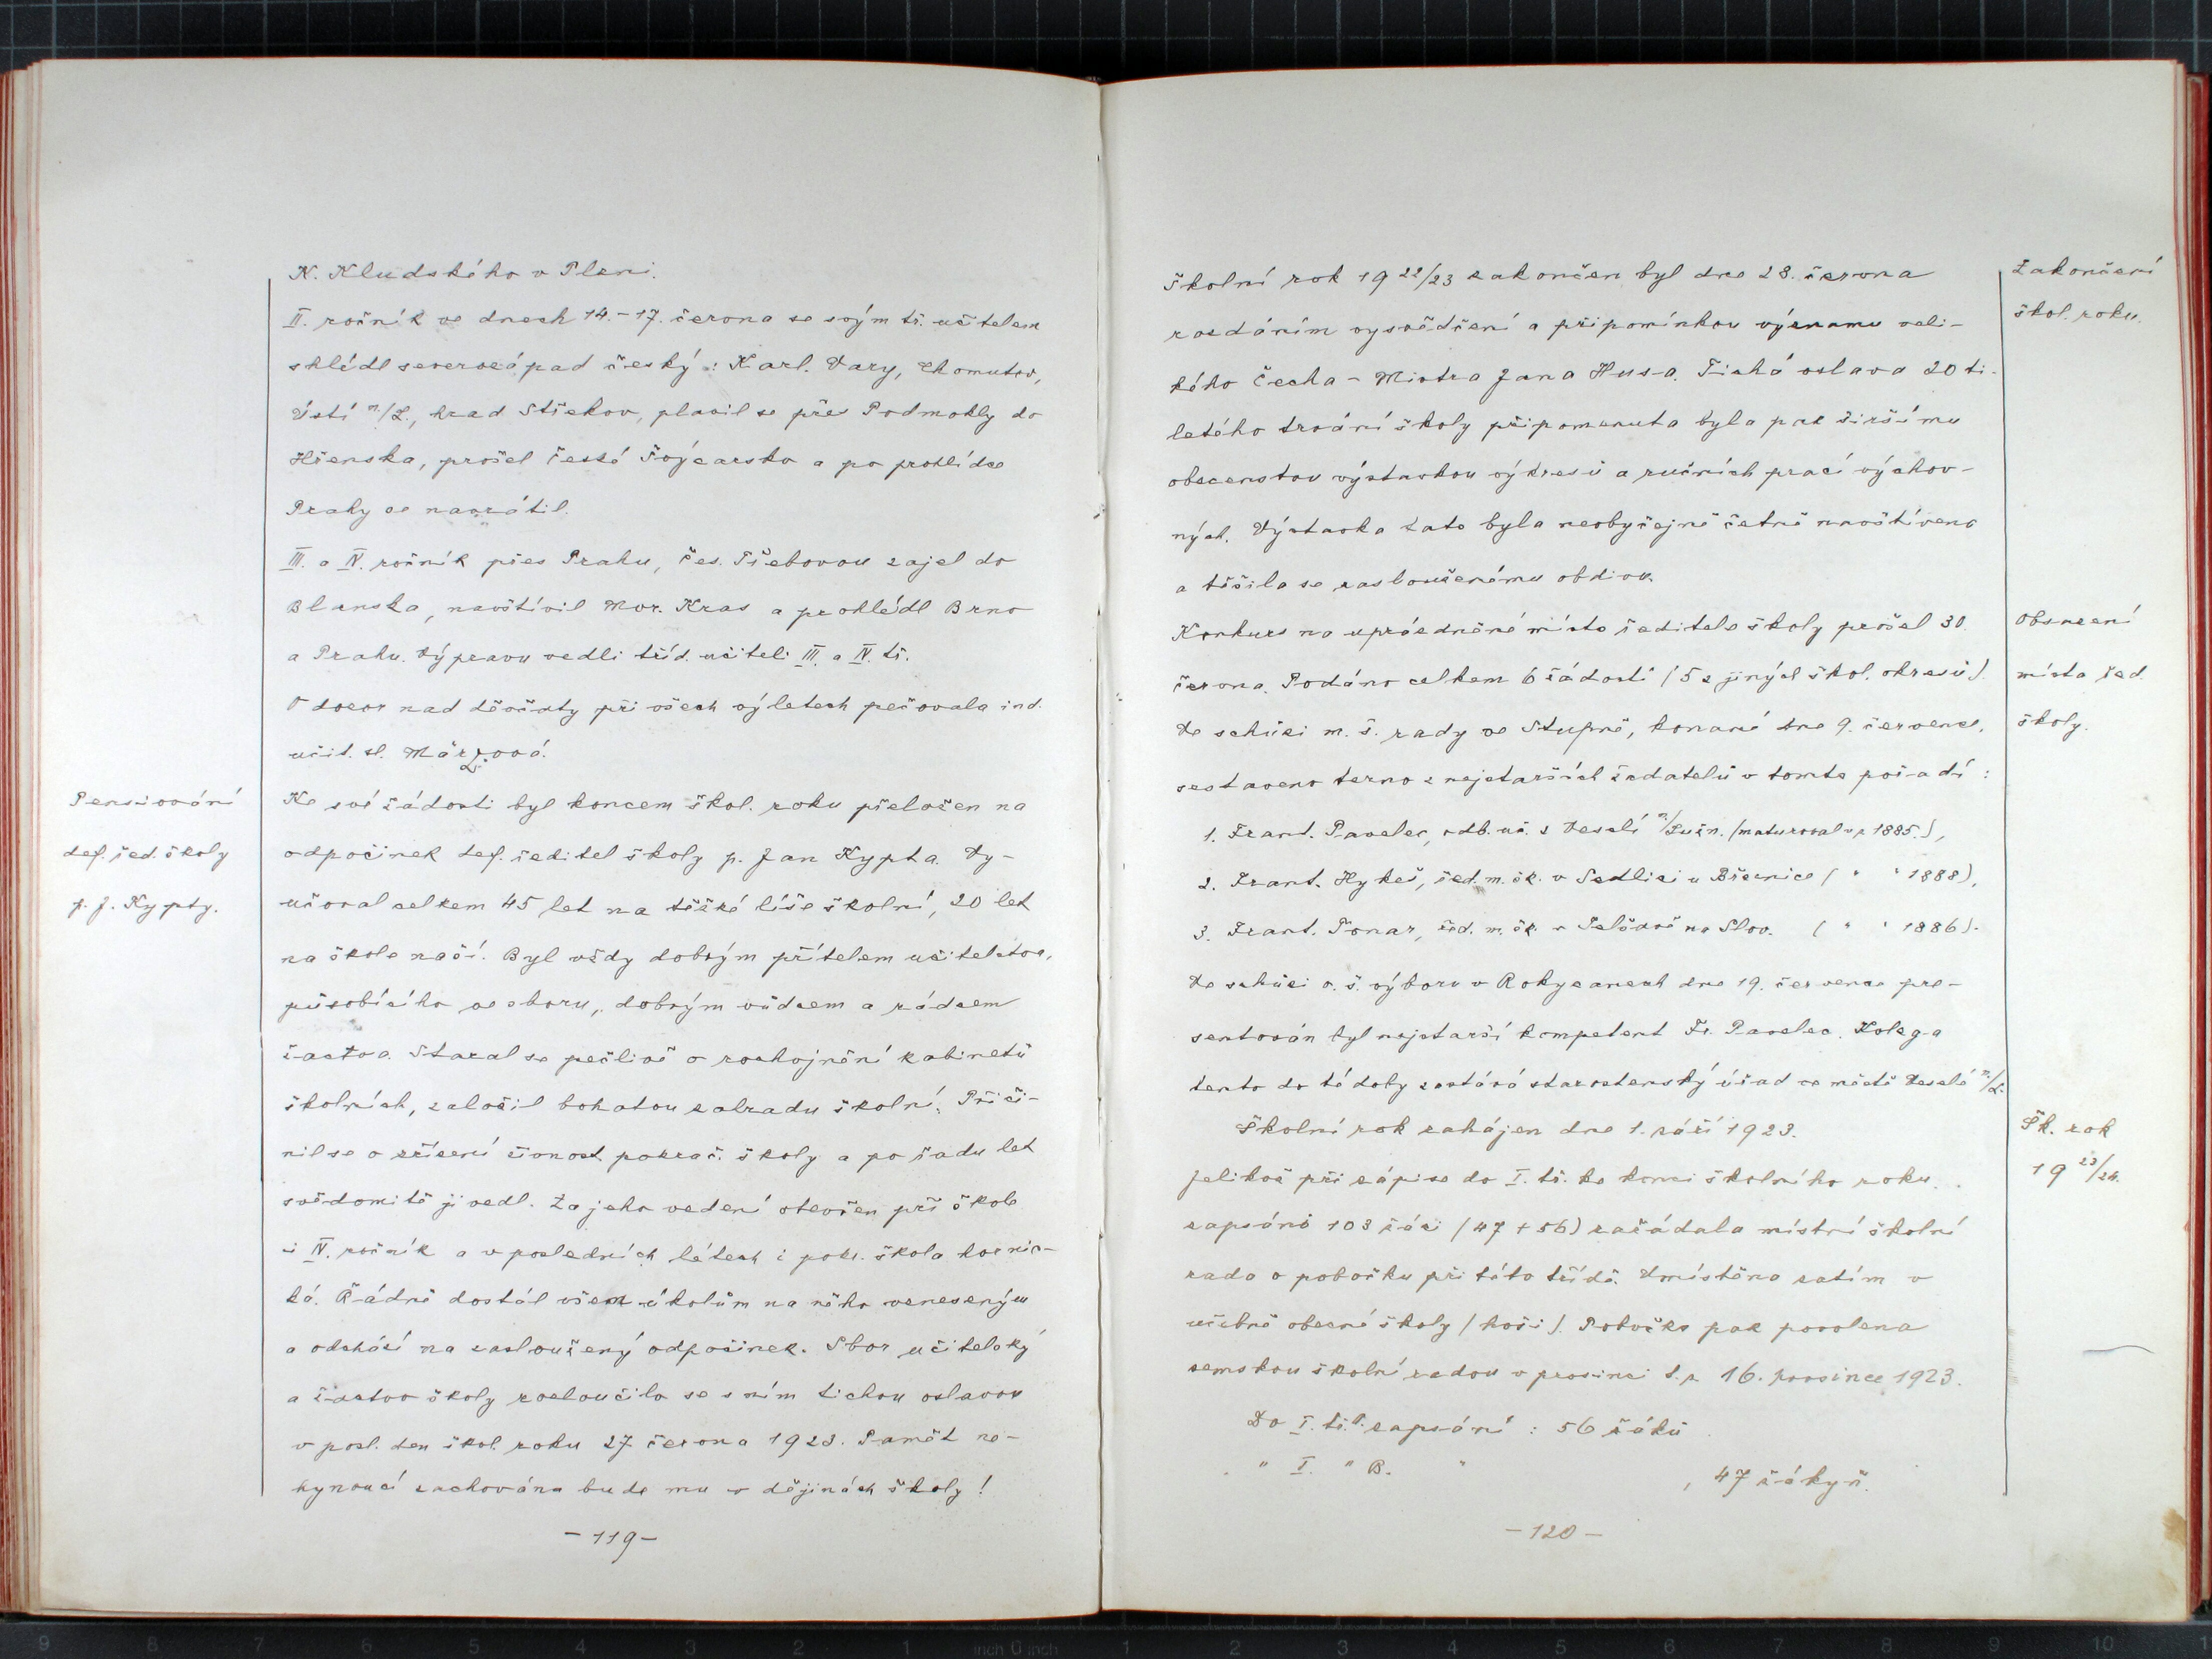 K. Kludského v Plzni.
II. ročník ve dnech 14.-17. června se svým tř. učitelem
shlédl severozápad český: Karl. Vary, Chomutov,
Ústí n./L., hrad Střekov, plavil se přes Podmokly do
Hřenska, prošel České Švýcarsko a po prohlídce
Prahy se navrátil.
III. a IV. ročník přes Prahu, Čes. Třebovou zajel do
Blanska, navštívil Mor. Kras a prohlédl Brno
a Prahu. Výpravu vedli tříd. učiteli III. a IV. tř.
O dozor nad děvčaty při všech výletech pečovala ind.
učit. sl. Märzová.
Pensiování
def. řed. školy
p. J. Kypty.
Ke své žádosti byl koncem škol. roku přeložen na
odpočinek def. ředitel školy p. Jan Kypta. Vy-
učoval celkem 45 let na těžké líše školní, 20 let
na škole naší. Byl vždy dobrým přítelem učitelstva,
působícího ve sboru, dobrým vůdcem a rádcem
žactva. Staral se pečlivě o rozhojnění kabinetů
školních, založil bohatou zahradu školní. Přiči-
nil se o zřízení živnost. pokrač. školy a po řadu let
svědomitě ji vedl. Za jeho vedení otevřen při škole
i IV. ročník a v posledních létech i pokr. škola hornic-
ká. Řádně dostál všem úkolům na něho vzneseným
a odchází na zasloužený odpočinek. Sbor učitelský
a žactvo školy rozloučilo se s ním tichou oslavou
v posl. den škol. roku 27. června 1923. Paměť ne-
hynoucí zachována bude mu v dějinách školy!
-119-
Zakončení
škol. roku.
Školní rok 1922/23 zakončen byl dne 28. června
rozdáním vysvědčení a připomínkou významu veli-
kého Čecha - Mistra Jana Husa. Tichá oslava 20 ti-
letého trvání školy připomenuta byla pak širšímu
obecenstvu výstavkou výkresů a ručních prací výchov-
ných. Výstavka tato byla neobyčejně četně navštívena
a těšila se zaslouženému obdivu.
Obsazení
místa řed.
školy.
Konkurs na uprázdněné místo ředitele školy prošel 30.
června. Podáno celkem 6 žádostí (5 z jiných škol. okresů).
Ve schůzi m. š. rady ve Stupně, konané dne 9. července,
sestaveno terno z nejstarších žadatelů v tomto pořadí:
1. Frant. Pavelec, odb. uč. z Veselí n/Lužn. (maturoval v r. 1885.),
2. Frant. Hykeš, řed. m. šk. v Sedlici u Březnice ( " " 1888),
3. Frant. Ponar, řed. m. šk. v na Slov. ( " " 1886).
Ve schůzi o. š. výboru v Rokycanech dne 19. července pre-
sentován byl nejstarší kompetent Fr. Pavelec. Kolega
tento do té doby zastává starostenský úřad ve městě Veselí n./L.
Šk. rok
1923/24.
Školní rok zahájen dne 1. září 1923.
Jelikož při zápise do I. tř. ke konci školního roku
zapsáno 103 žáci (47 + 56) zažádala místní školní
rada o pobočku při této třídě. Umístěna zatím v
učebně obecné školy (hoši). Pobočka pak povolena
zemskou školní radou v prosinci t. r. 16. prosince 1923.
Do I. tř. zapsáni : 56 žáků
" I. " B. " , 47 žákyň.
-120-